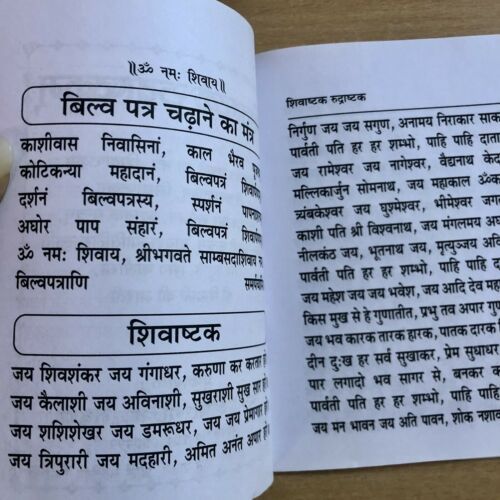 ॥ॐ नमः शिवाय॥
बिल्व पत्र चढ़ाने का मंत्र
काशीवास निवासिनां, काल भैरव
कोटिकन्या महादानं, बिल्वपत्रं
दर्शनं बिल्वपत्रस्य, स्पर्शनं
अघोर पाप संहारं, बिल्वपत्रं
ॐ नमः शिवाय, श्रीभगवते साम्बसदाशिवाय
बिल्वपत्राणि
शिवाष्टक
जय शिवशंकर जय गंगाधर, करुणा कर
जय कैलाशी जय अविनाशी, सुखराशी सुख सार
जय शशिशेखर जय डमरूधर, जय जय प्रेमागार
जय त्रिपुरारी जय मदहारी, अमित अनंत अपार
शिवाष्टक रुद्राष्टक
निर्गुण जय जय सगुण, अनामय निराकार
पार्वती पति हर हर शम्भो, पाहि पाहि
जय रामेश्वर जय नागेश्वर, वैद्यनाथ
मल्लिकार्जुन सोमनाथ, जय महाकाल
त्र्यंबकेश्वर जय घुश्मेश्वर, भीमेश्वर
काशी पति श्री विश्वनाथ, जय मंगलमय
नीलकंठ जय, भूतनाथ जय, मृत्युञ्जय
पार्वती पति हर हर शम्भो, पाहि पाहि
जय महेश जय जय भवेश, जय आदि देव
किस मुख से हे गुणातीत, प्रभु तव अपार
जय भव कारक तारक हारक, पातक दारक
दीन दुःख हर सर्व सुखाकर, प्रेम सुधाधर
पार लगादो भव सागर से, बनकर
पार्वती पति हर हर शम्भो, पाहि पाहि
जय मन भावन जय अति पावन, शोक